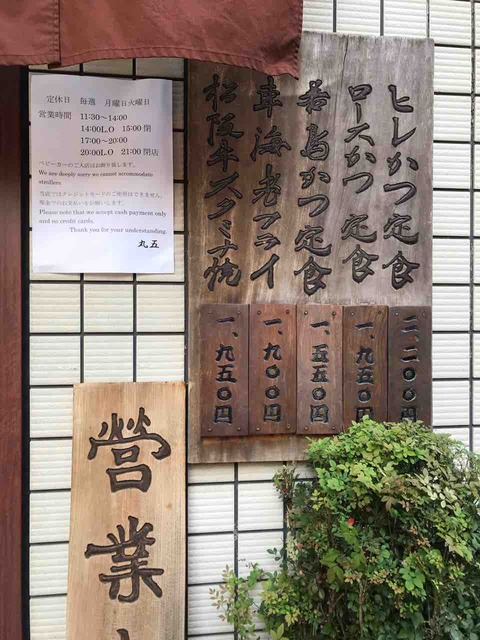 定休日　毎週　月曜日火曜日
営業時間　11:30〜14:00
14:00L.O　15:00閉
17:00〜20:00
20:00L.O　21:00閉店
ベビーカーのご入店はお断り致します。
We are deeply sorry we cannot accommodate
strollers
当店ではクレジットカードのご使用はできません。
現金でのお支払いをお願いします。
Please note that we accept cash payment only
and no credit cards.
Thank you for your understanding.
丸五
ヒレかつ定食
二、二〇〇円
ロースかつ定食
一、九五〇円
若鳥かつ定食
一、五五〇円
車海老フライ
一、九〇〇円
松阪牛スタミナ焼
一、九五〇円
營業